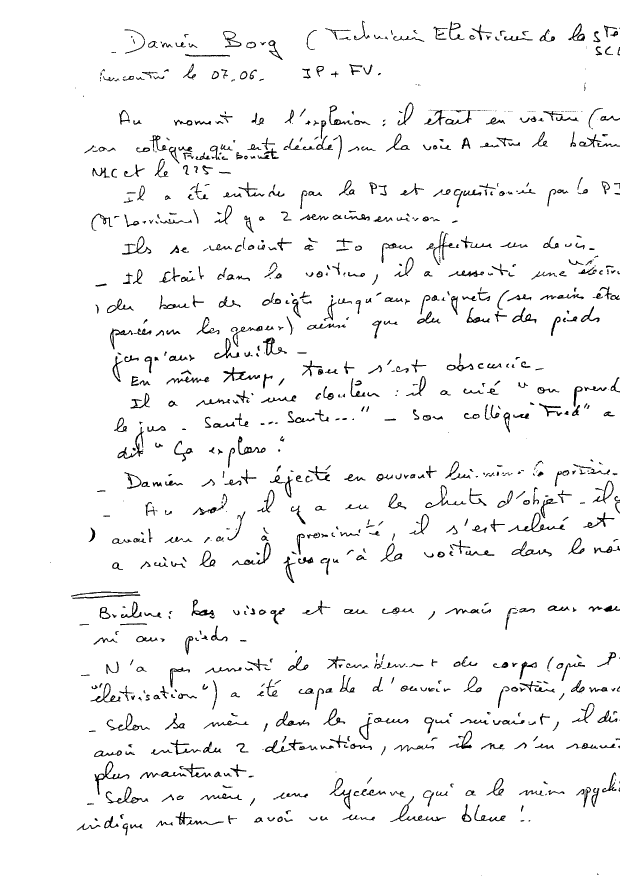 - Damien Borg (Technicien Electricien de la Sté
rencontré le 07.06. JP + FV.
Au moment de l'explosion : il était en voiture (av
son collègue qui est décédé) sur la voie A entre le batim
Frédéric Bonnet
NLC et le 225 -
Il a été entendu par la PJ et requestionné par la PJ
(Mr ) il y a 2 semaines environ -
Ils se rendaient à Io pour effectuer un devis -
- Il était dans la voiture, il a ressenti une "électri
du bout des doigts jusqu'aux poignets (ses mains éta
posées sur les genoux) ainsi que du bout des pieds
jusqu'aux chevilles -
En même temps, tout s'est obscurcie -
Il a ressenti une douleur : il a crié "on prend
le jus - Saute ... Saute ..." - Son collègue "Fred" a
dit "Ça explose"
- Damien s'est éjecté en ouvrant lui-même la portière -
- Au sol, il y a eu les chutes d'objet - il y
avait un rail à proximité, il s'est relevé et
a suivi le rail jusqu'à la voiture dans le noi
- Brûlure : visage et au cou, mais pas aux mai
ni aux pieds -
- N'a pas ressenti de tremblement du corps (après l'
"électrisation") a été capable d'ouvrir la portière, demar
- Selon sa mère, dans les jours qui suivaient, il dis
avoir entendu 2 détonnations, mais il ne s'en souvie
plus maintenant -
- Selon sa mère, une lycéenne, qui a le même spychi
indique nettement avoir vu une lueur bleue !.